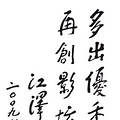 多出優秀
再創影
江澤
二〇〇九